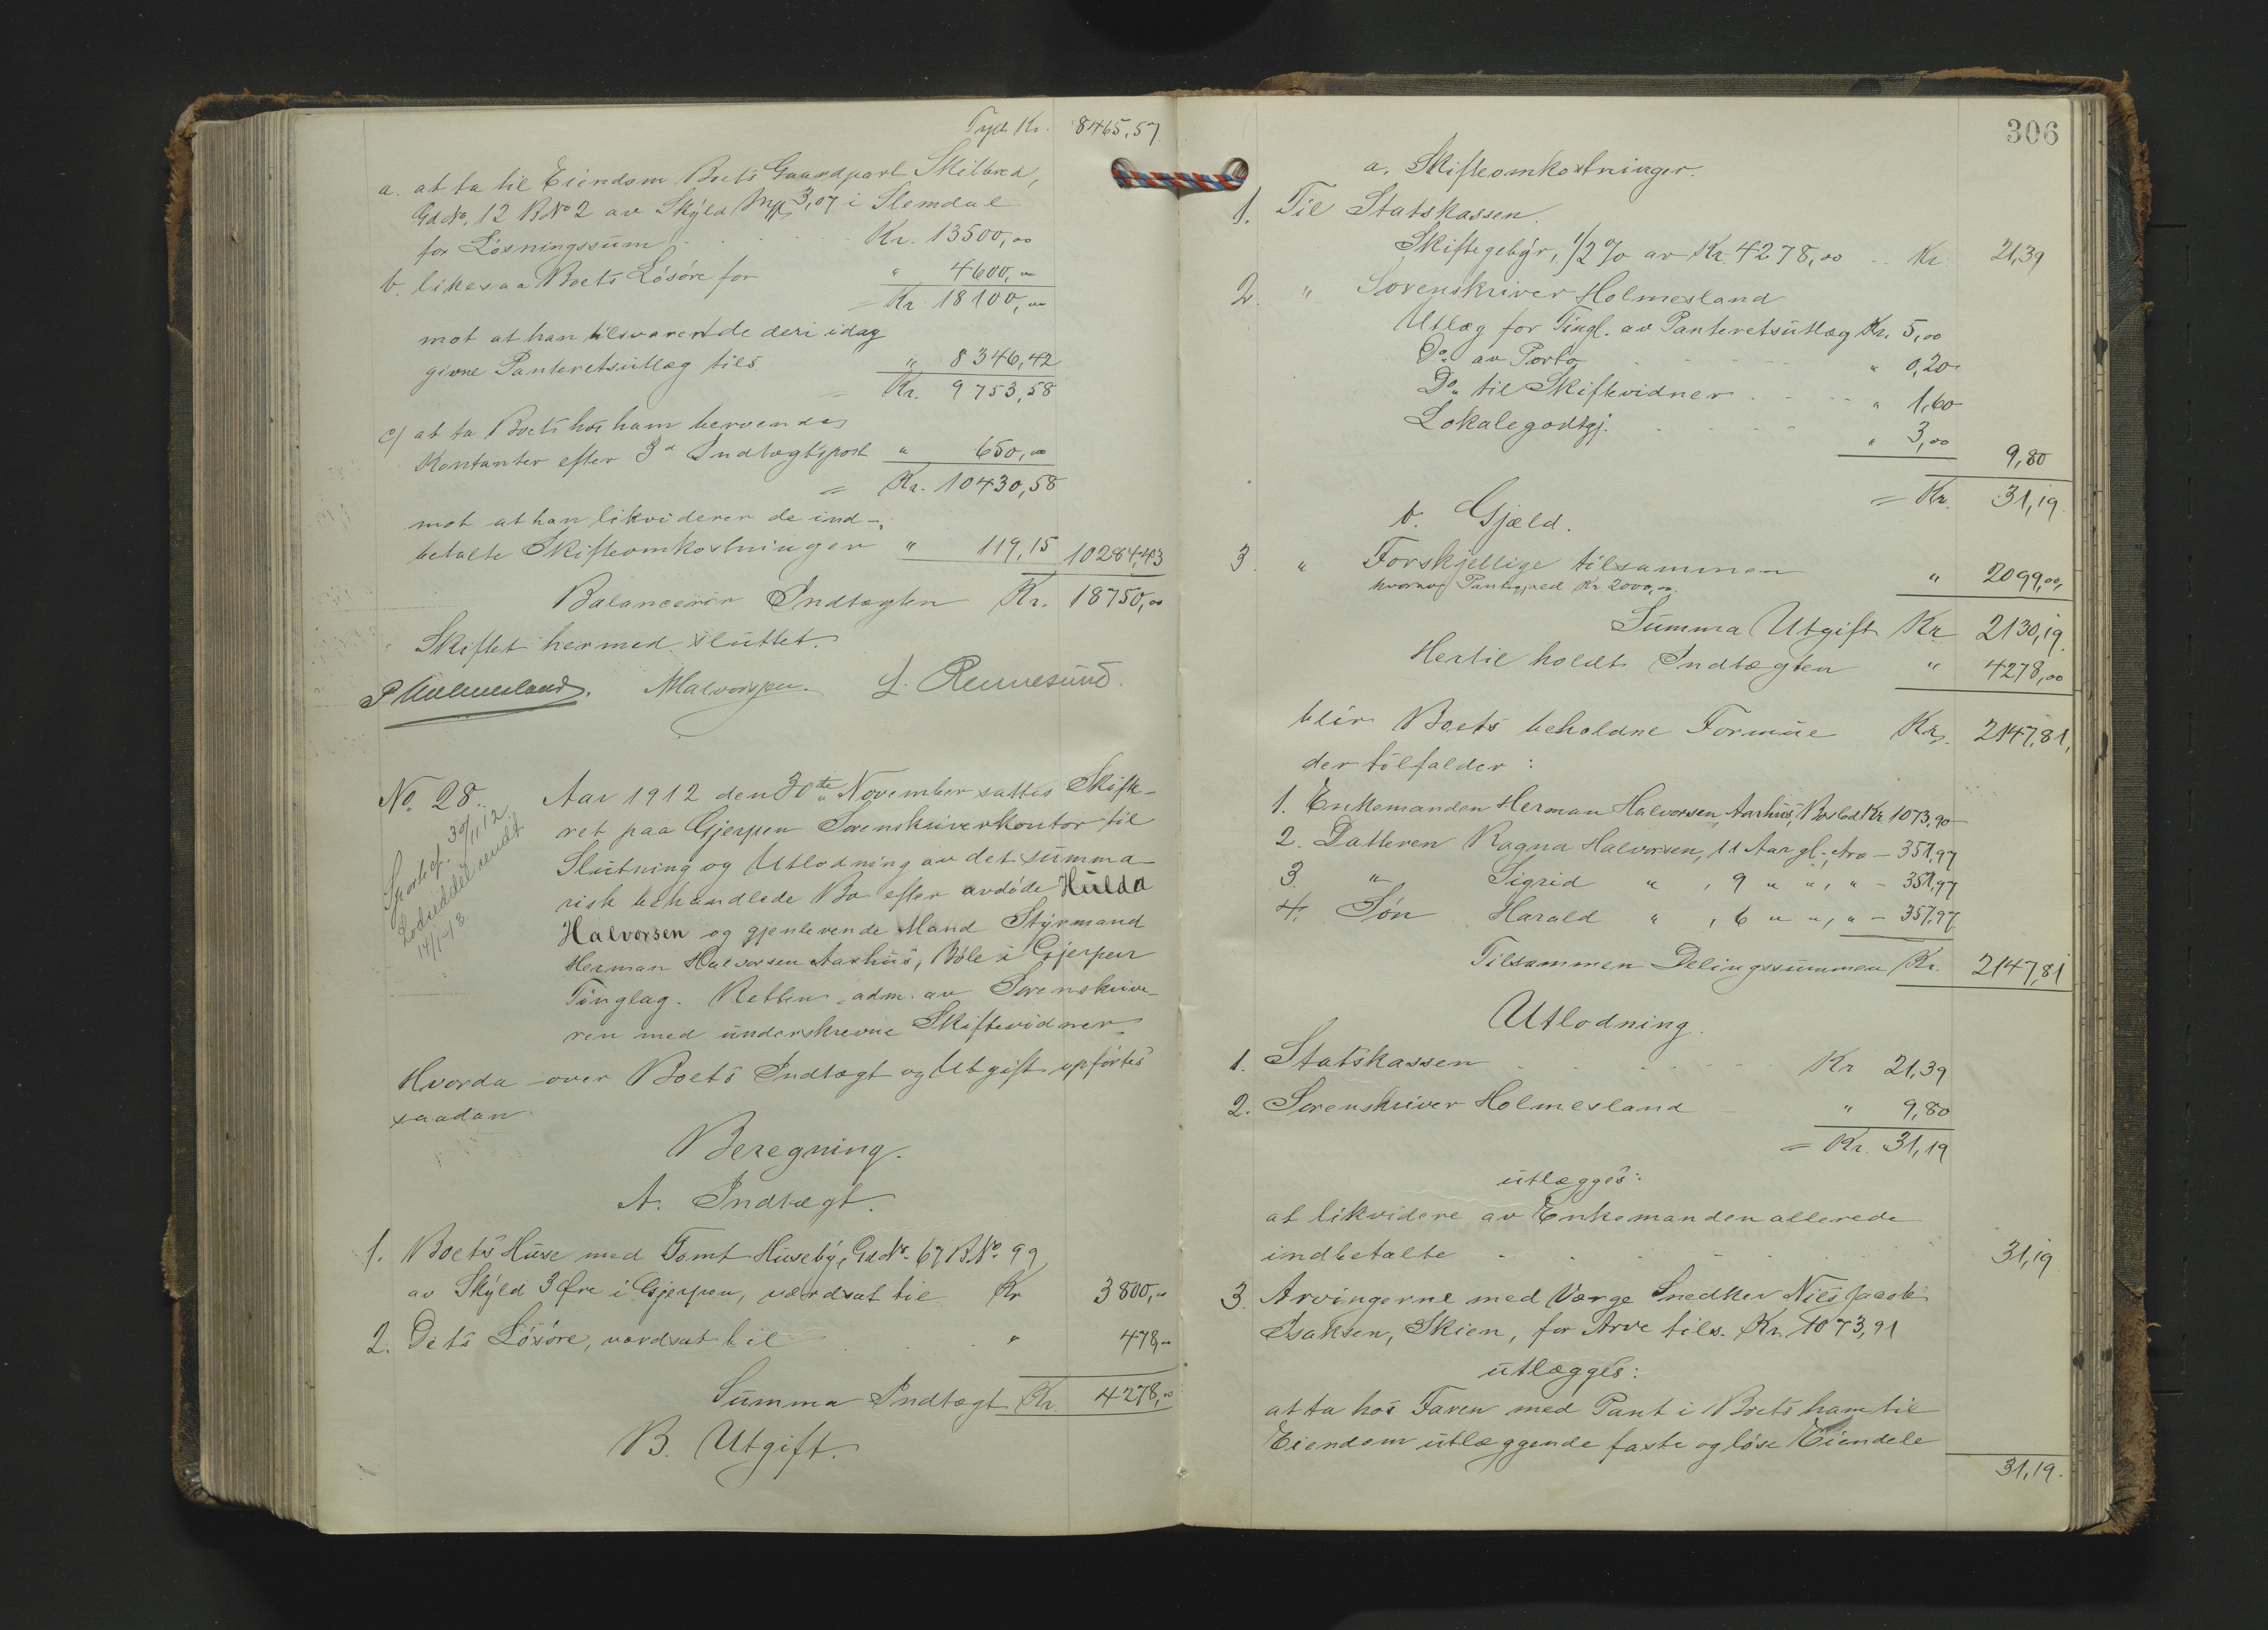 Kr. 8465,57
a. at ta til Eiendom Boets Gaardpart Skilbred,
Gd No. 12 B No 2 av Skyld Mk 3,07 i Slemdal
for Løsningssum Kr. 13500,00
b. likesaa Boets Løsøre for " 4600,00
= Kr. 18100,00
mot at han tilsvarer de deri idag
givne Panteretsutlæg tils. " 8346,42
= Kr. 9753,58
c) at ta Boets hos ham beroende
Kontanter efter 3d Indtægtspost " 650,00
= Kr. 10430,58
mot at han likviderer de ind-
betalte Skifteomkostninger " 119,15 10284,43
Balancerer Indtægten Kr. 18750,00
Skiftet hermed sluttet.
P Holmesland. MHalvorsen. L. Rennesund.
No. 28.
Aar 1912 den 30te November sattes Skifte-
ret paa Gjerpen Sorenskriverkontor til
Slutning og Utlodning av det summa-
risk behandlede Bo efter avdøde Hulda
Halvorsen og gjenlevende Mand Styrmand
Herman Halvorsen Aarhus, Bøle i Gjerpen
Tinglag. Retten adm. av Sorenskrive-
ren med underskrevne Skiftevidner.
30/11 12
Lodseddel utsendt
14/1-13
Hvorda over Boets Indtægt og Utgift opførtes
saadan
Beregning.
A. Indtægt.
1. Boets Huse med Tomt Huseby, Gd No. 67 B No. 99
av Skyld 3 Øre i Gjerpen, værdsat til Kr 3800,00
2. Dets Løsøre, værdsat til " 478,00
Summa Indtægt Kr. 4278,00
B. Utgift.
306
a. Skifteomkostninger.
1. Til Statskassen.
Skiftegebyr, 1/2 % av Kr. 4278,00 Kr. 21,39
2. " Sorenskriver Holmesland
Utlæg for Tingl. av Panteretsutlæg Kr. 5,00
Do. av Porto " 0,20
Do. til Skiftevidner " 1,60
Lokalegodtgj. " 3,00
9,80
= Kr. 31,19
b. Gjæld.
3 " Forskjellige tilsammen " 2099,00
hvorav Pantegjæld Kr 2000,00.
Summa Utgift Kr 2130,19
Hertil holdt Indtægten " 4278,00
blir Boets beholdne Formue Kr. 2147,81,
der tilfalder:
1. Enkemanden Herman Halvorsen Aarhus, Boslod Kr 1073,90
2. Datteren Ragna Halvorsen, 11 Aar gl., Arv - 357,97
3. " Sigrid " , 9 " " , " - 357,97
4. Søn Harald " , 6 " " , " - 357,97
Tilsammen Delingssummen Kr. 2147,81
Utlodning.
1. Statskassen Kr 21,39
2. Sorenskriver Holmesland " 9,80
= Kr. 31,19
utlægges:
at likvidere av Enkemanden allerede
indbetalte 31,19
3. Arvingerne med Værge Snedker Nils Jacob
Isaksen, Skien, for Arv tils. Kr. 1073,91
utlægges:
at ta hos Faren med Pant i Boets ham til
Eiendom utlæggende faste og løse Eiendele
31,19.